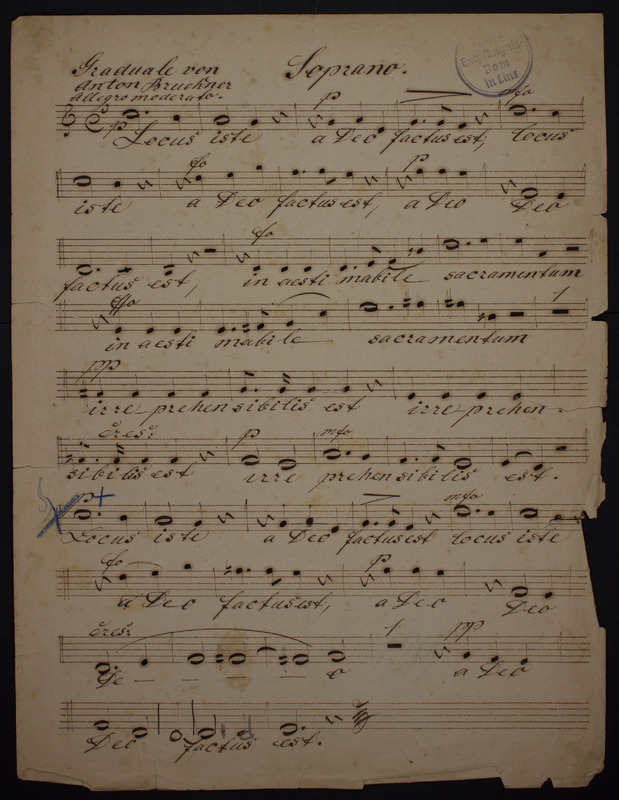 Graduale von Soprano.
Anton Bruckner
allegro moderato.
Empfängnis-
Dom
in Linz
p mfo
p Locus iste a Deo factus est, locus
fo p
iste a Deo factus est, a Deo Deo
fo
factus est, in aesti mabile sacramentum
ffo 1
in aesti mabile sacramentum
pp
irre prehen sibilis est irre prehen-
cres: p mfo
sibilis est irre prehensibilis est.
p + mfo
Locus iste a Deo factus est locus iste
fo p
a Deo factus est, a Deo Deo
cres: 1 pp
De — — — — o a Deo
Deo factus est.